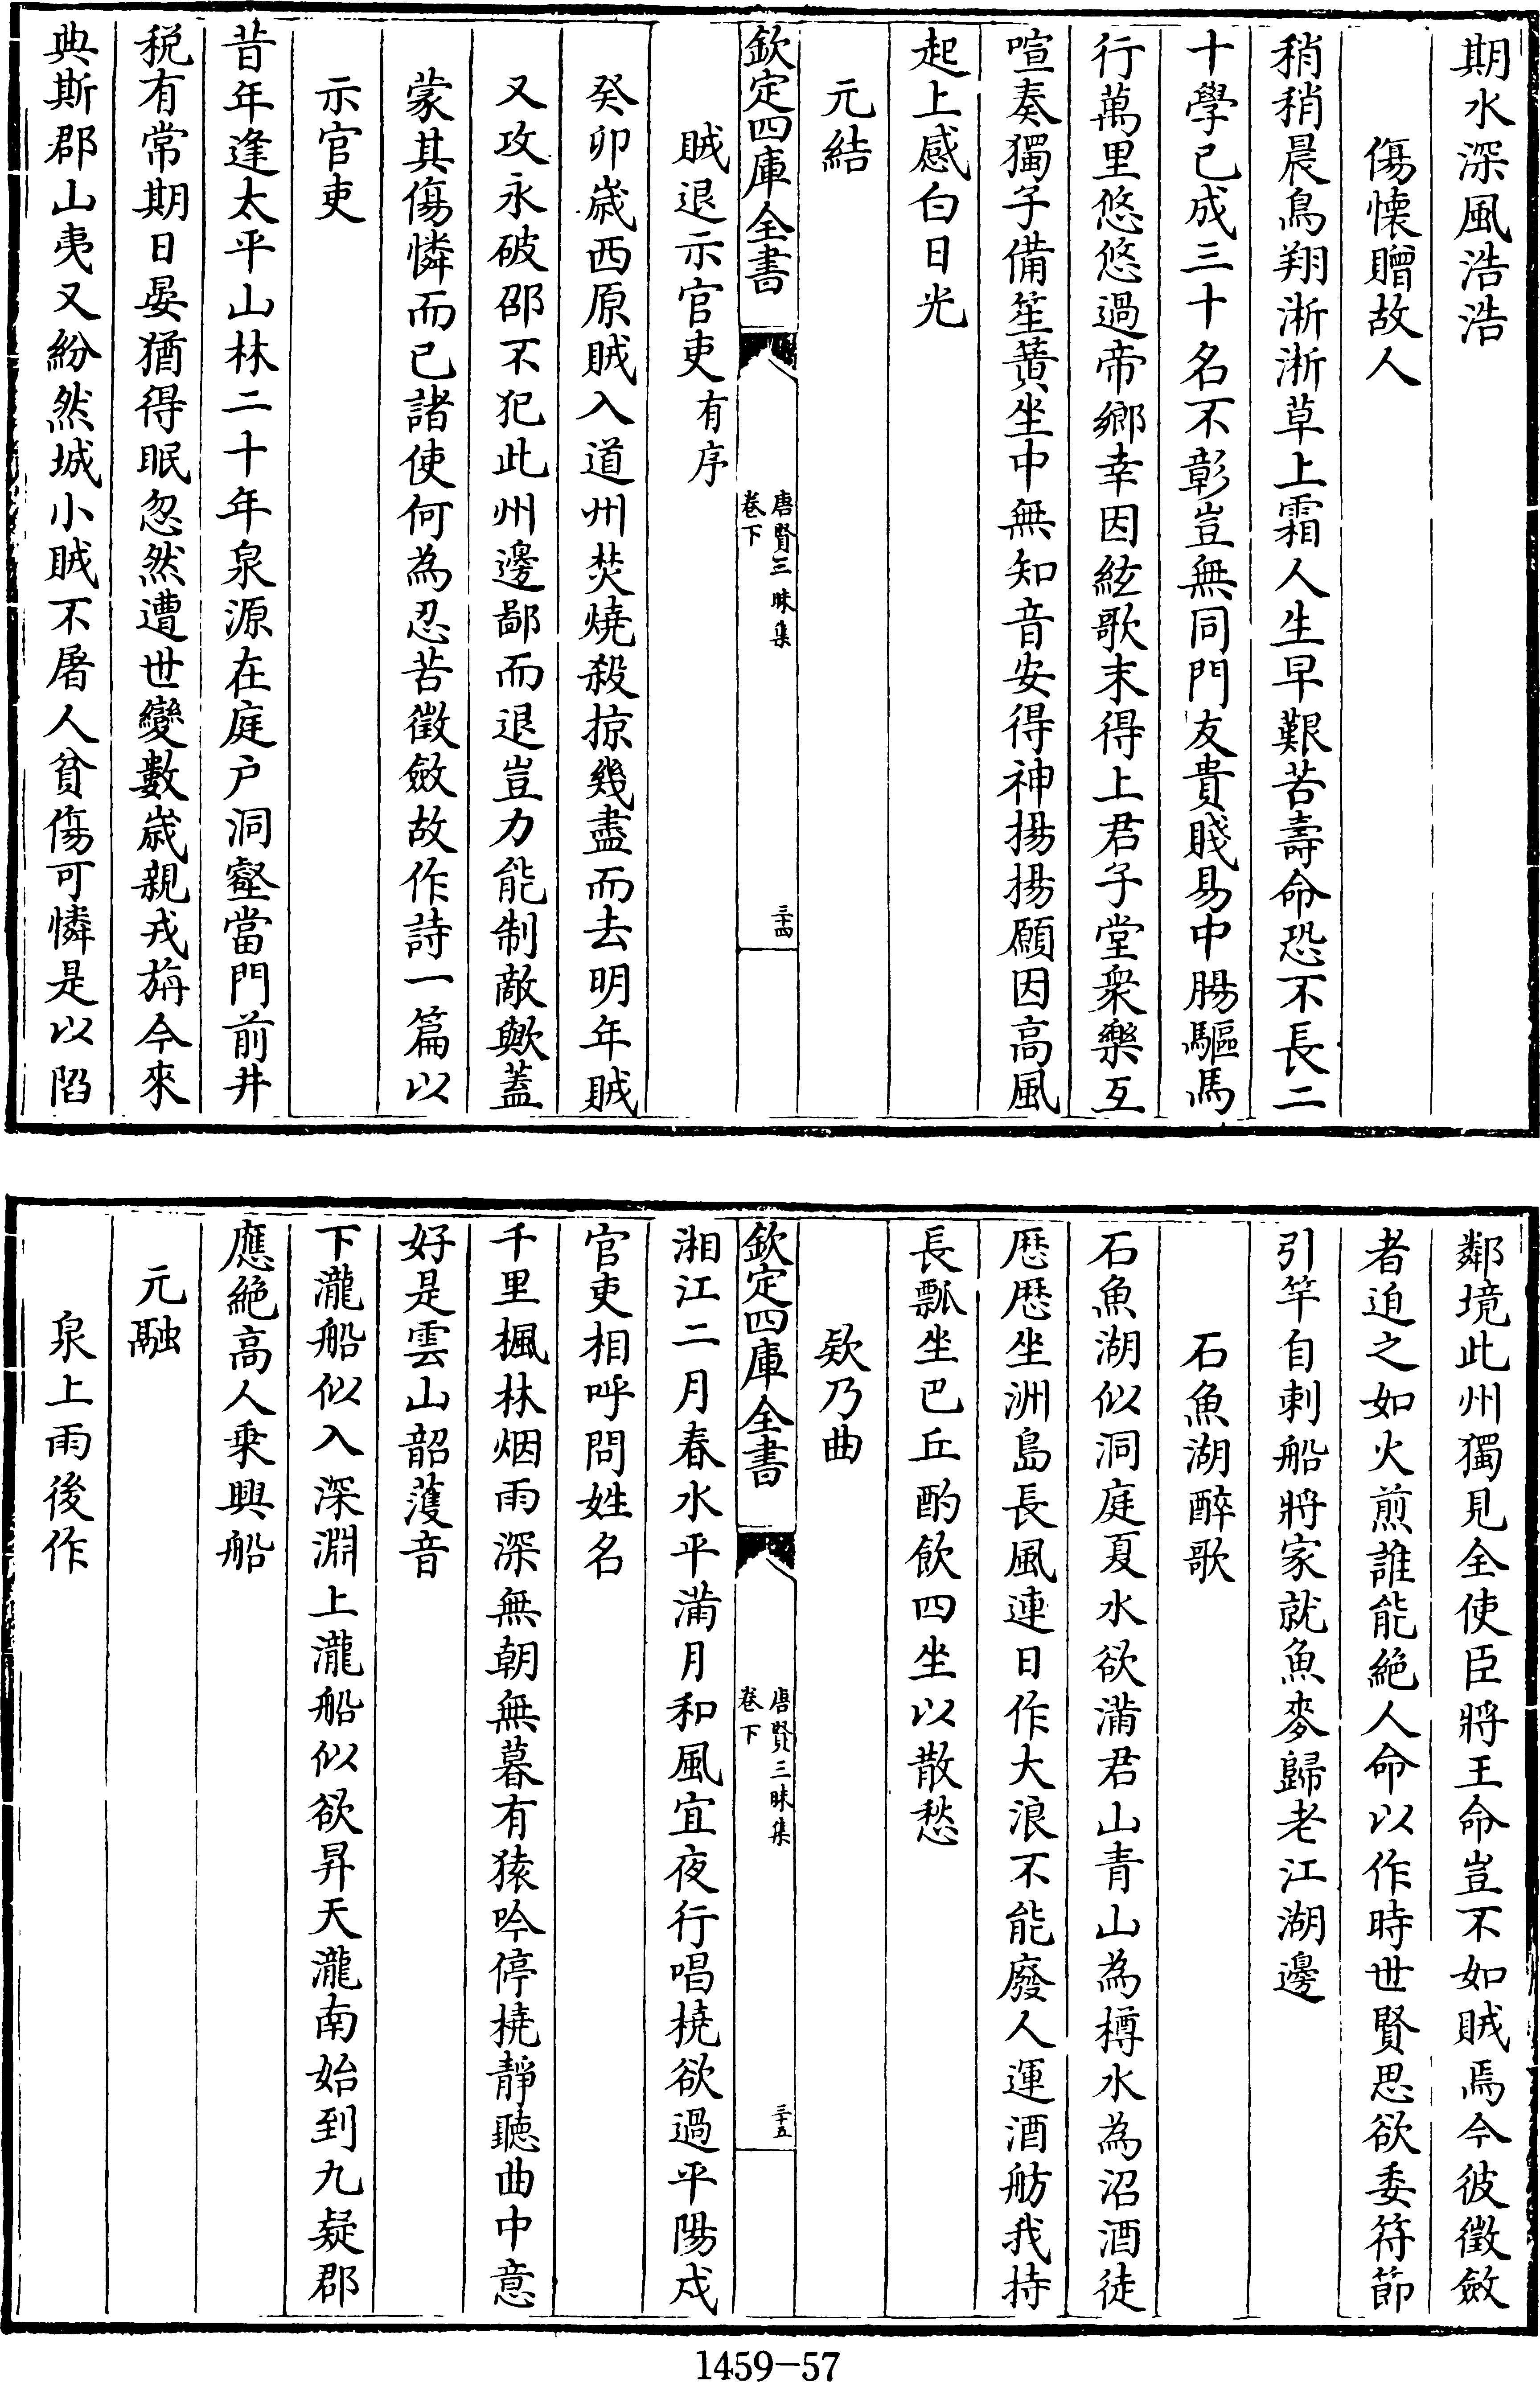 期水深風浩浩
傷懐贈故人
稍稍晨鳥翔淅淅草上霜人生早艱苦壽命恐不長二
十學已成三十名不彰豈無同門友貴賤易中腸驅馬
行萬里悠悠過帝鄉幸因絃歌末得上君子堂衆樂互
喧奏獨子備笙簧坐中無知音安得神揚揚願因高風
起上感白日光
元結
欽定四庫全書
唐賢三昧集
卷下
三十四
賊退示官吏有序
癸卯歳西原賊入道州焚燒殺掠幾盡而去明年賊
又攻永破邵不犯此州邊鄙而退豈力能制敵歟蓋
蒙其傷憐而已諸使何為忍苦徵斂故作詩一篇以
示官吏
昔年逢太平山林二十年泉源在庭户洞壑當門前井
税有常期日晏猶得眠忽然遭世變數歳親戎旃今來
典斯郡山夷又紛然城小賊不屠人貧傷可憐是以陷
鄰境此州獨見全使臣將王命豈不如賊焉今彼徵斂
者迫之如火煎誰能絶人命以作時世賢思欲委符節
引竿自刺船將家就魚麥歸老江湖邊
石魚湖醉歌
石魚湖似洞庭夏水欲滿君山青山為樽水為沼酒徒
歴歴坐洲島長風連日作大浪不能廢人運酒舫我持
長瓢坐巴丘酌飲四坐以散愁
欵乃曲
欽定四庫全書
唐賢三昧集
卷下
三十五
湘江二月春水平滿月和風宜夜行唱橈欲過平陽戍
官吏相呼問姓名
千里楓林烟雨深無朝無暮有猿吟停橈靜聽曲中意
好是雲山韶濩音
下瀧船似入深淵上瀧船似欲昇天瀧南始到九疑郡
應絶高人乗興船
元融
泉上雨後作
1459-57